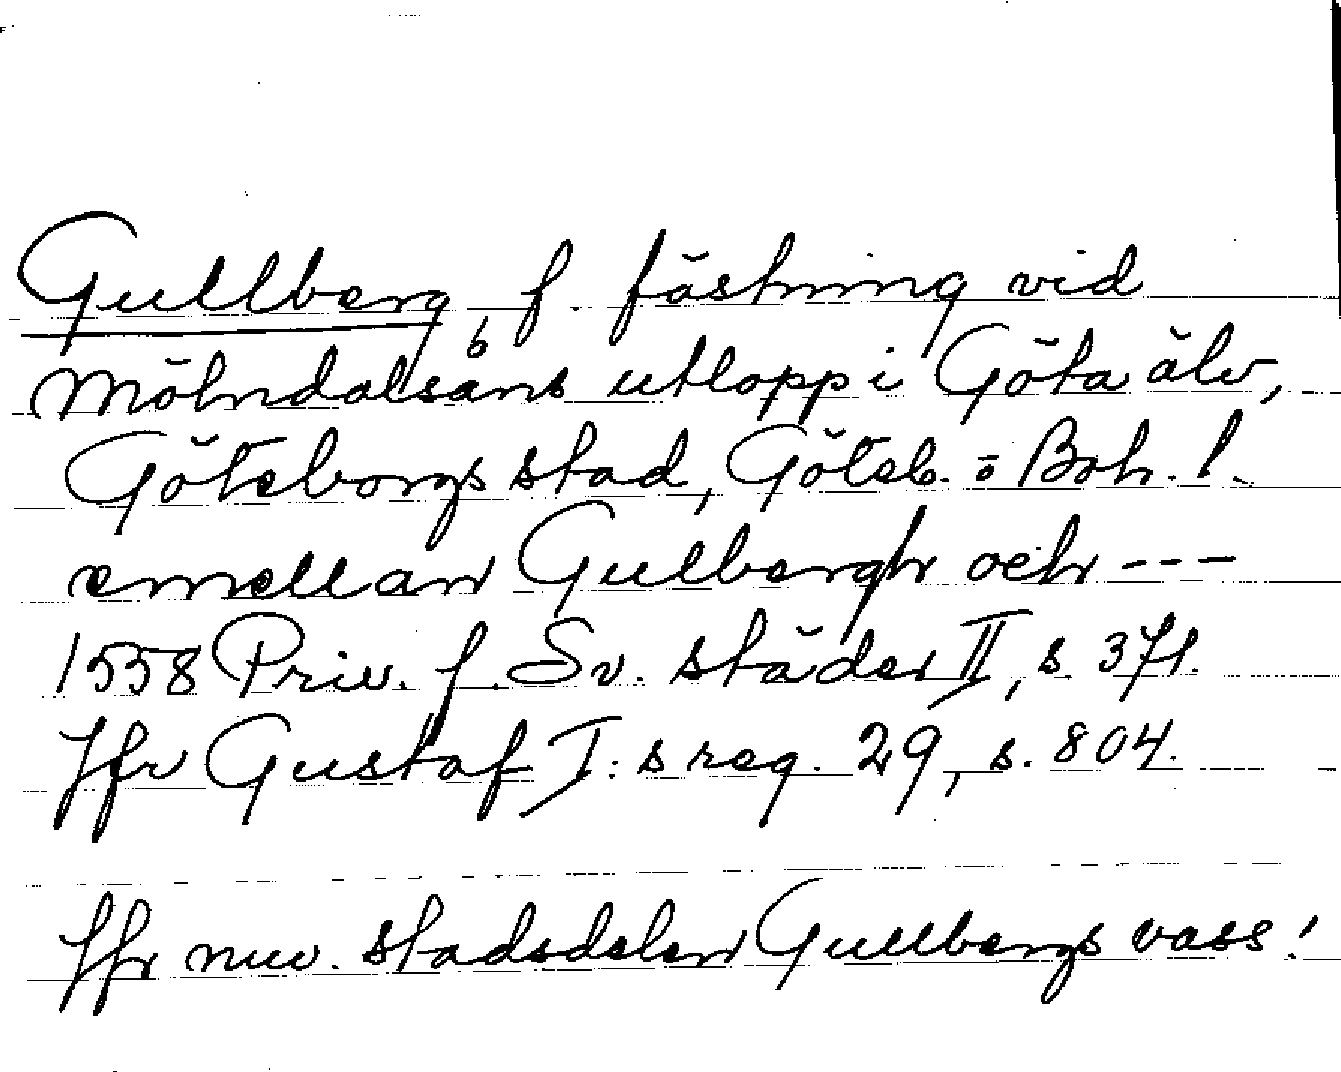 Gullberg, f. fästning vid
Mölndalsåns utlopp i Göta älv,
Göteborgs stad, Göteb. o Boh. l.
emellan Gulbergh och ---
1558 Priv. f. Sv. städer II, s. 371.
Jfr Gustaf I:s reg. 29, s. 804.
Jfr nuv. stadsdelen Gullbergs vass!